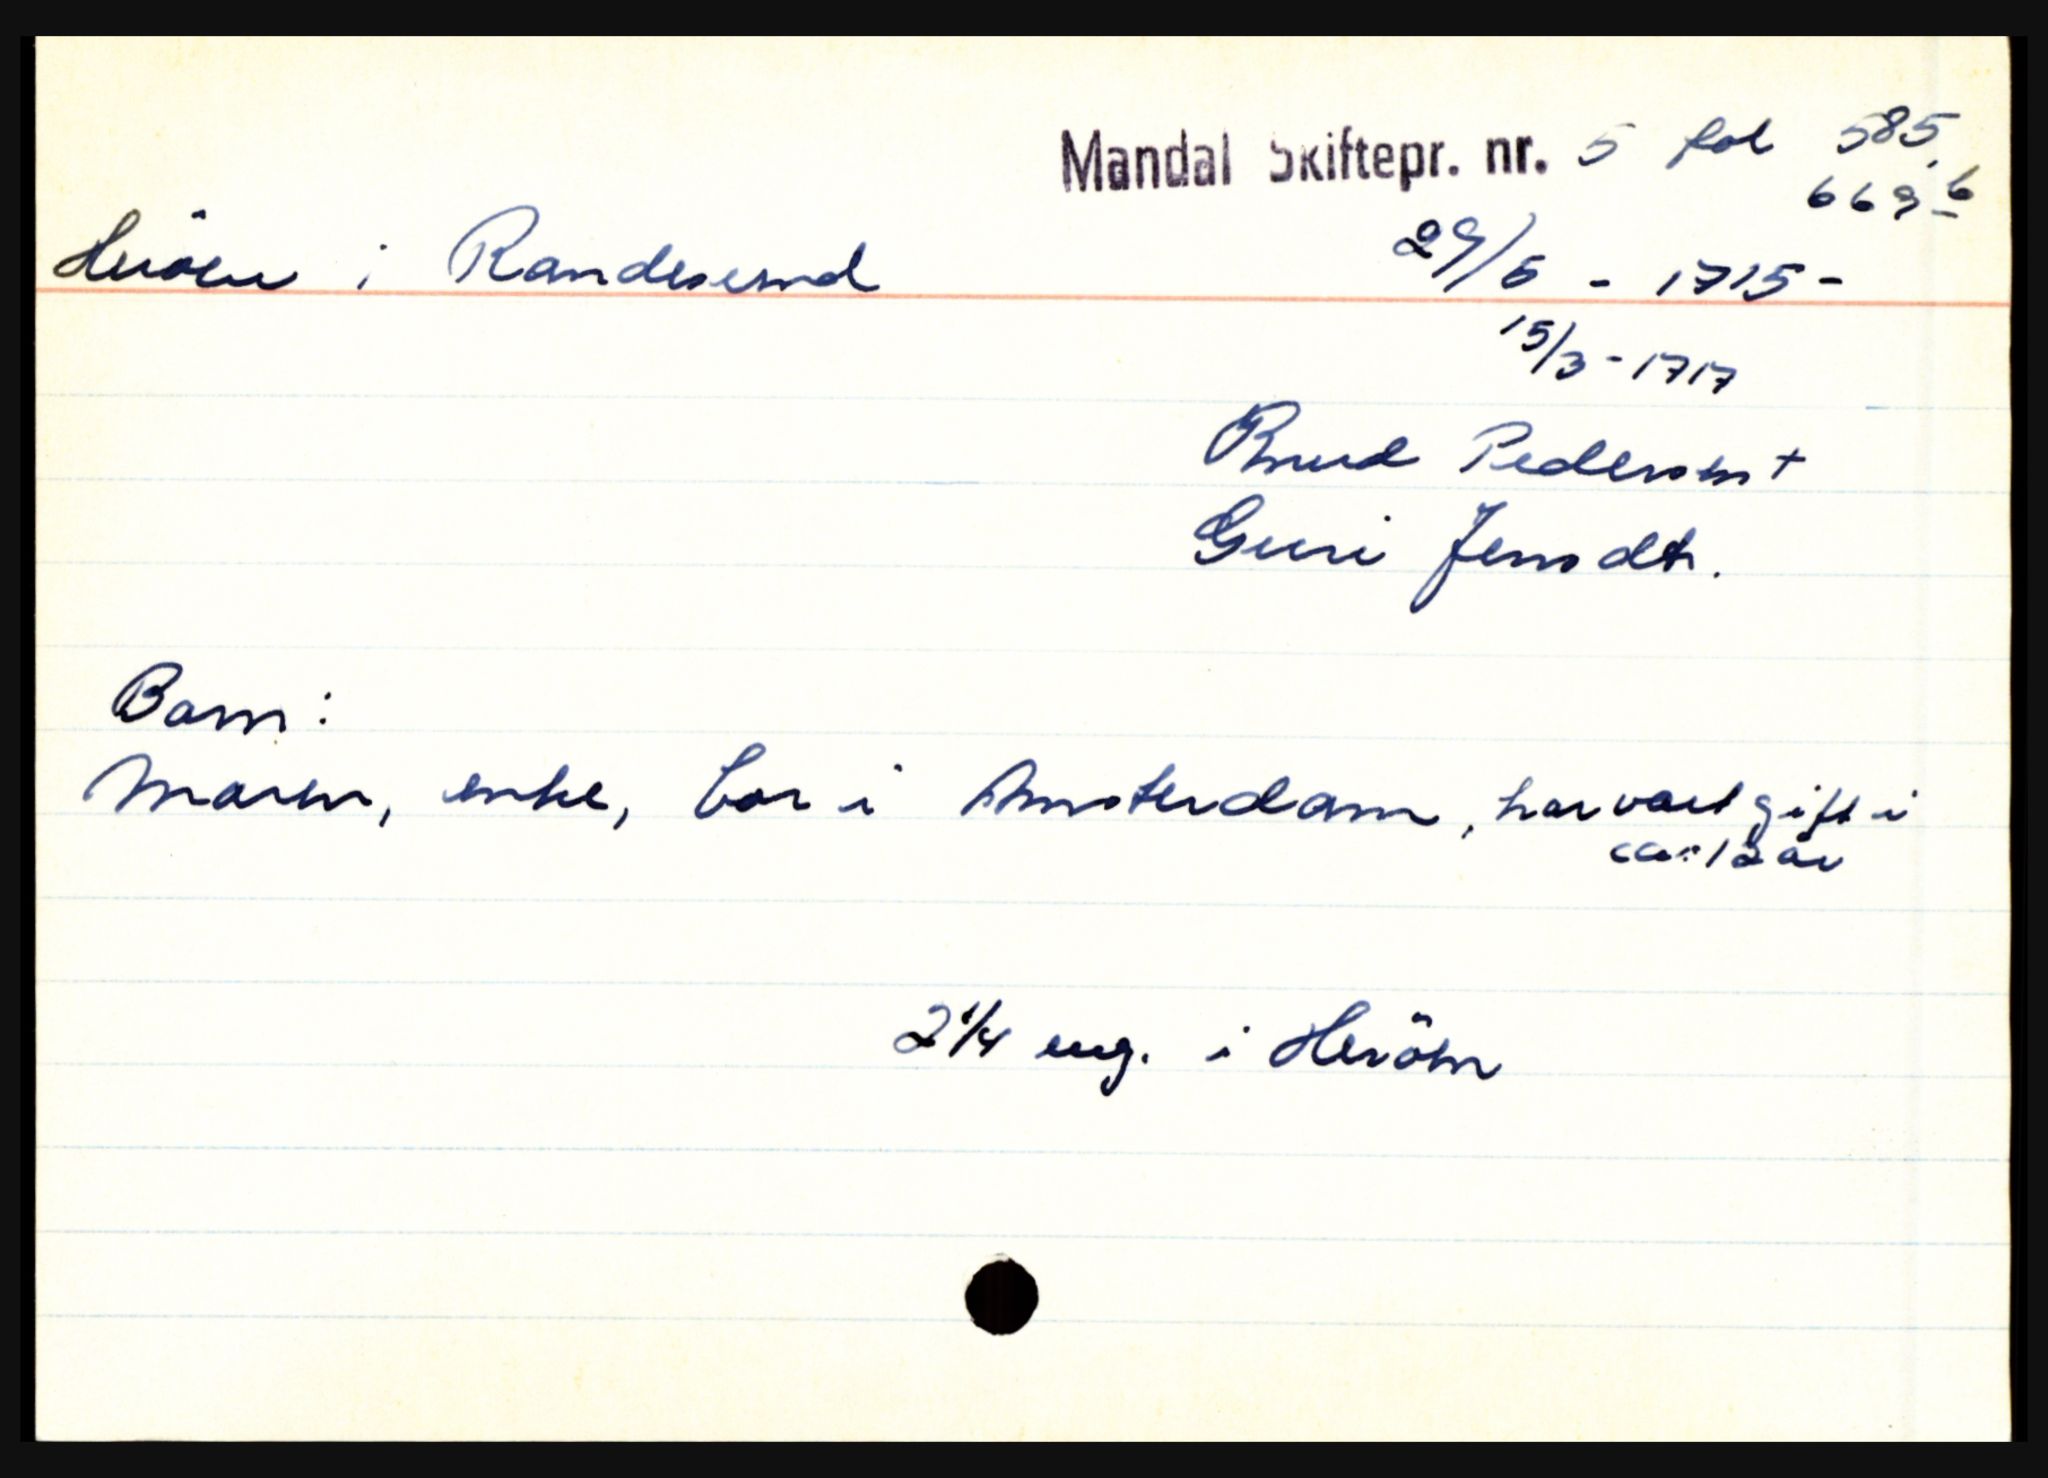 Mandal Skiftepr. nr. 5 fol 585.
669 b
Heröen i Randesund 29/5 - 1715 -
15/3 - 1717
Knud Pedersen +
Guri Jensdtr.
Barn:
Maren, enke, bor i Amsterdam, har vært gift i
ca. 12 år
2 1/4 eng. i Heröen